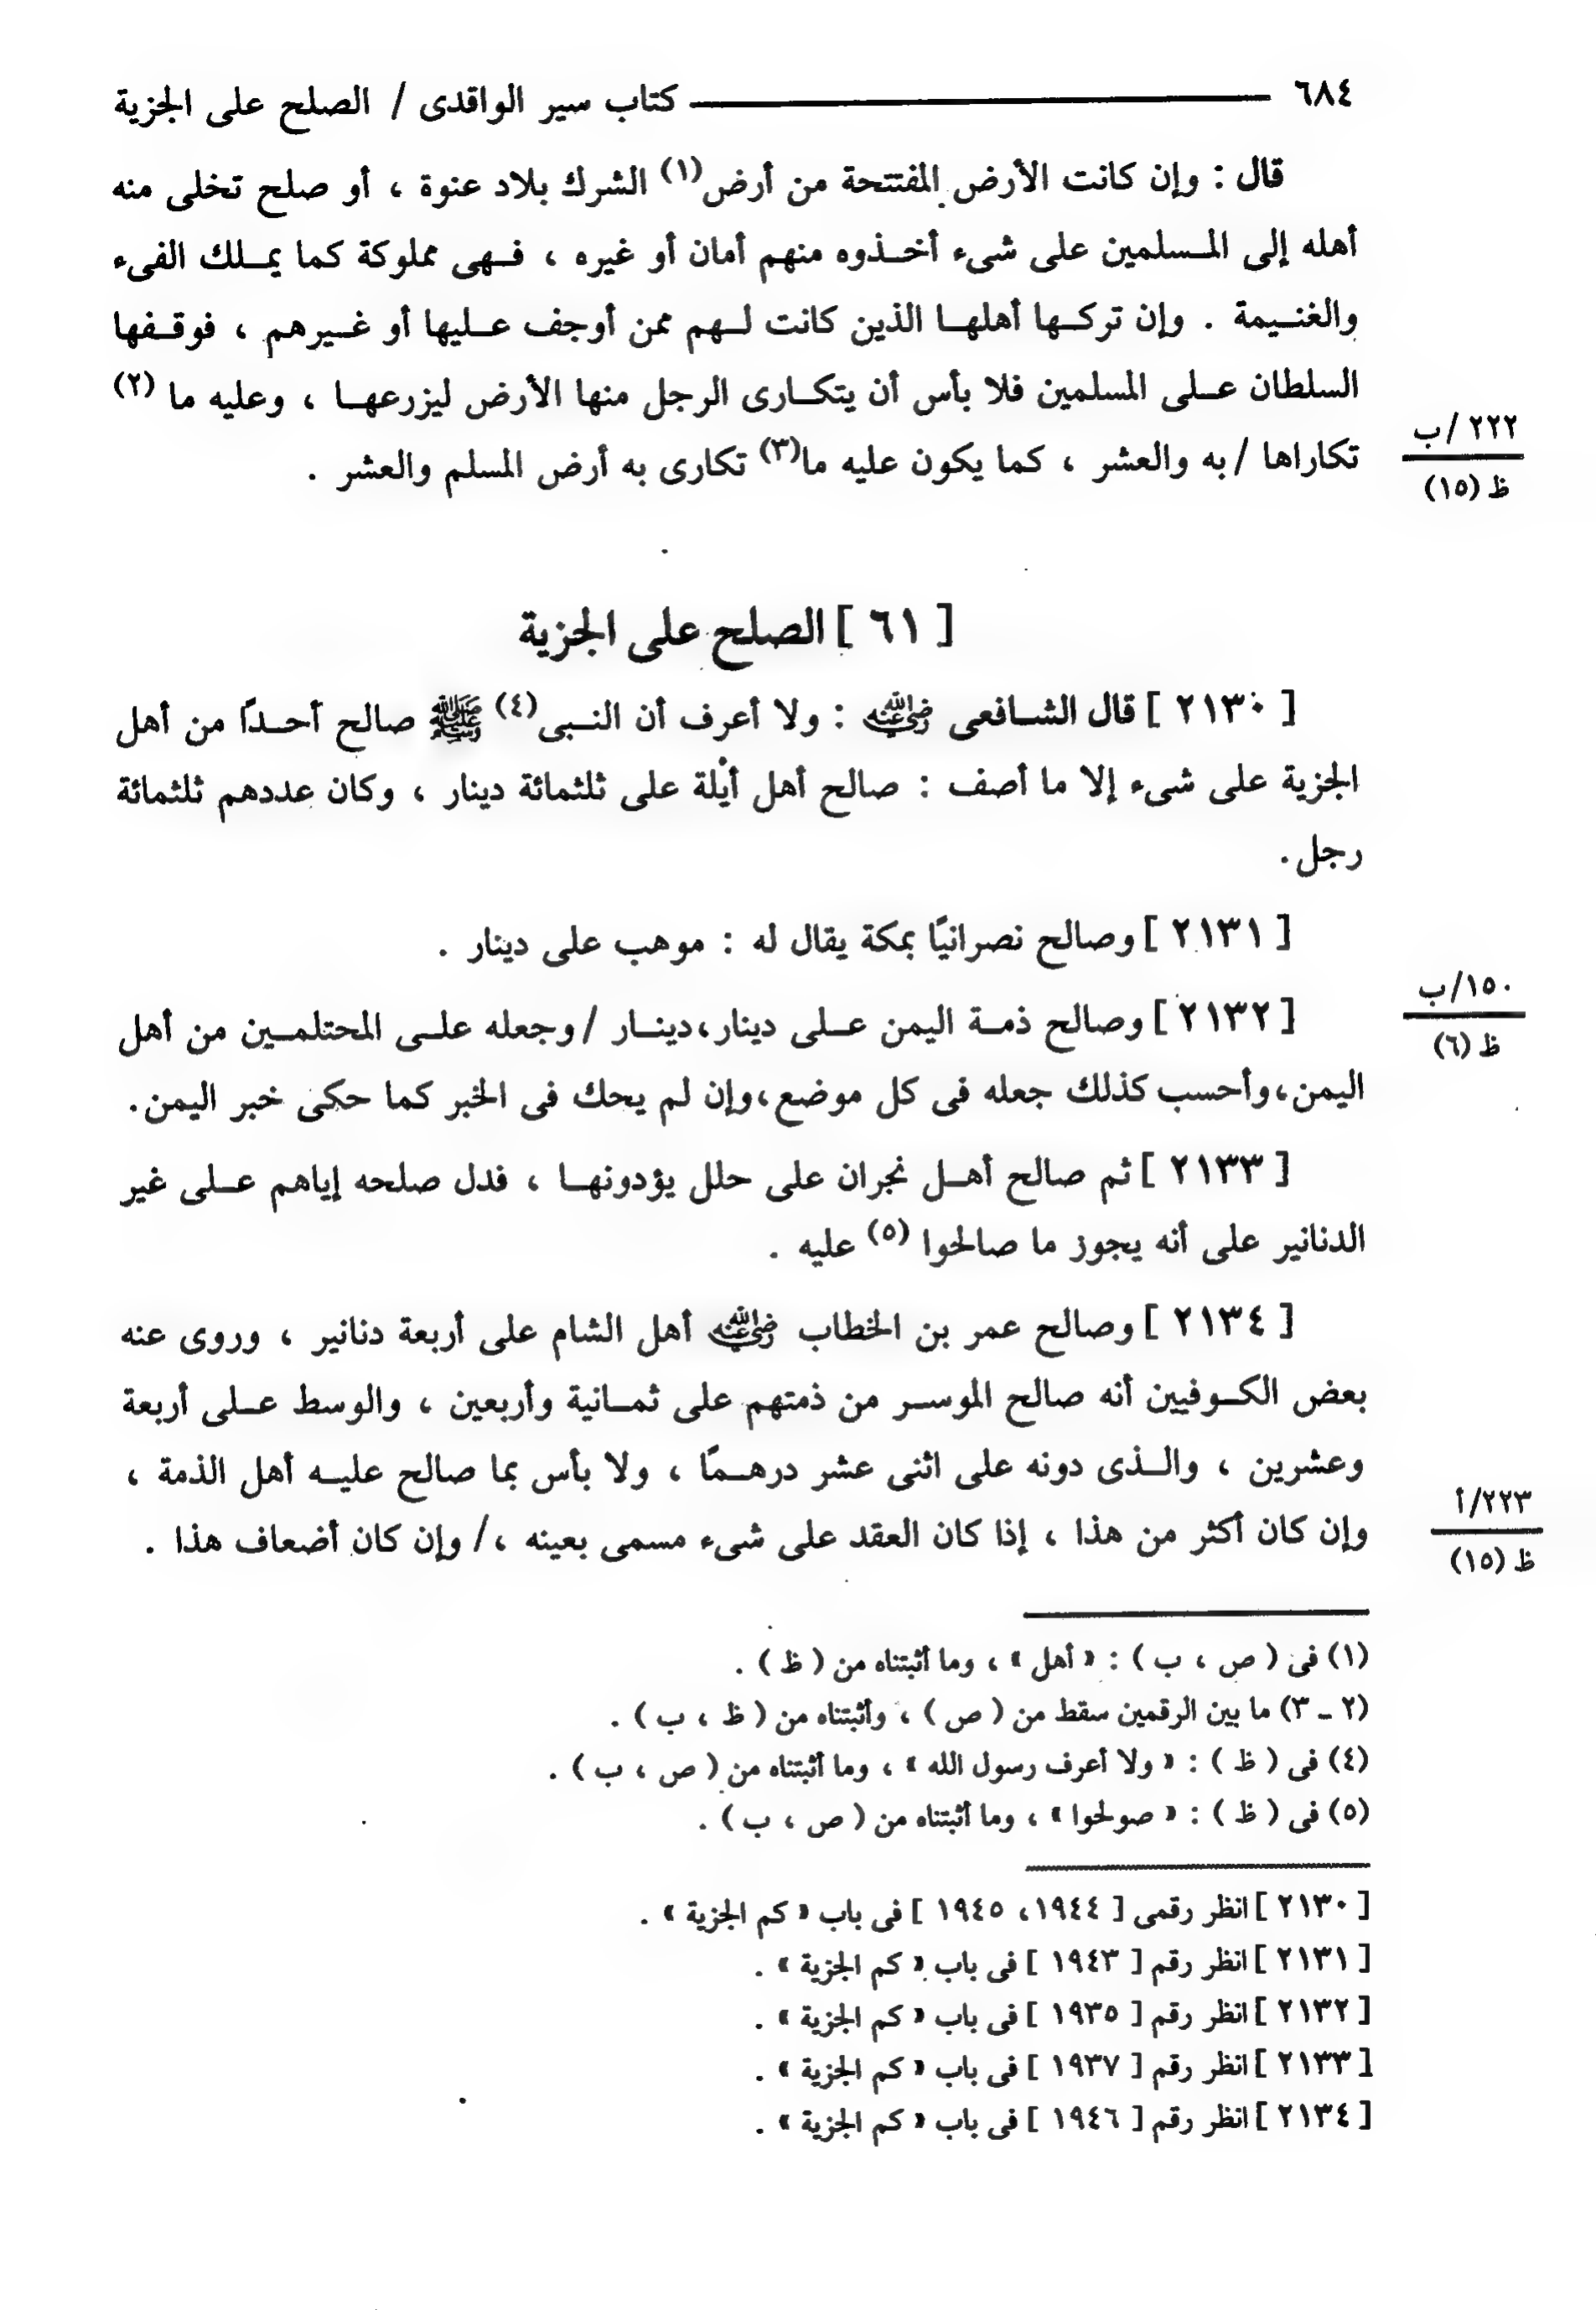 ٦٨٤ كتاب سير الواقدى / الصلح على الجزية
قال : وإن كانت الأرض المفتتحة من أرض(١) الشرك بلاد عنوة ، أو صلح تخلى منه
أهله إلى المسلمين على شىء أخذوه منهم أمان أو غيره ، فهى مملوكة كما يملك الفىء
والغنيمة . وإن تركها أهلها الذين كانت لهم ممن أوجف عليها أو غيرهم ، فوقفها
السلطان على المسلمين فلا بأس أن يتكارى الرجل منها الأرض ليزرعها ، وعليه ما (٢)
٢٢٢ /ب
تكاراها / به والعشر ، كما يكون عليه ما(٣) تكارى به أرض المسلم والعشر .
ظ (١٥)
[ ٦١ ] الصلح على الجزية
[ ٢١٣٠ ] قال الشافعى رضي الله عنه : ولا أعرف أن النبى(٤) ﷺ صالح أحدًا من أهل
الجزية على شىء إلا ما أصف : صالح أهل أيْلة على ثلثمائة دينار ، وكان عددهم ثلثمائة
رجل .
[ ٢١٣١ ] وصالح نصرانيًا بمكة يقال له : موهب على دينار .
١٥٠/ب
[ ٢١٣٢ ] وصالح ذمة اليمن على دينار،دينار / وجعله على المحتلمين من أهل
ظ (٦)
اليمن،وأحسب كذلك جعله فى كل موضع،وإن لم يحك فى الخبر كما حكى خبر اليمن.
[ ٢١٣٣ ] ثم صالح أهل نجران على حلل يؤدونها ، فدل صلحه إياهم على غير
الدنانير على أنه يجوز ما صالحوا (٥) عليه .
[ ٢١٣٤ ] وصالح عمر بن الخطاب رضي الله عنه أهل الشام على أربعة دنانير ، وروى عنه
بعض الكوفيين أنه صالح الموسر من ذمتهم على ثمانية وأربعين ، والوسط على أربعة
وعشرين ، والذى دونه على اثنى عشر درهمًا ، ولا بأس بما صالح عليه أهل الذمة ،
٢٢٣/أ
وإن كان أكثر من هذا ، إذا كان العقد على شىء مسمى بعينه ،/ وإن كان أضعاف هذا .
ظ (١٥)
(١) فى ( ص ، ب ) : « أهل » ، وما أثبتناه من ( ظ ) .
(٢ ـ ٣) ما بين الرقمين سقط من ( ص ) ، وأثبتناه من ( ظ ، ب ) .
(٤) فى ( ظ ) : « ولا أعرف رسول الله » ، وما أثبتناه من ( ص ، ب ) .
(٥) فى ( ظ ) : « صولحوا » ، وما أثبتناه من ( ص ، ب ) .
[ ٢١٣٠ ] انظر رقمى [ ١٩٤٤، ١٩٤٥ ] فى باب « كم الجزية » .
[ ٢١٣١ ] انظر رقم [ ١٩٤٣ ] فى باب « كم الجزية » .
[ ٢١٣٢ ] انظر رقم [ ١٩٣٥ ] فى باب « كم الجزية » .
[ ٢١٣٣ ] انظر رقم [ ١٩٣٧ ] فى باب « كم الجزية » .
[ ٢١٣٤ ] انظر رقم [ ١٩٤٦ ] فى باب « كم الجزية » .